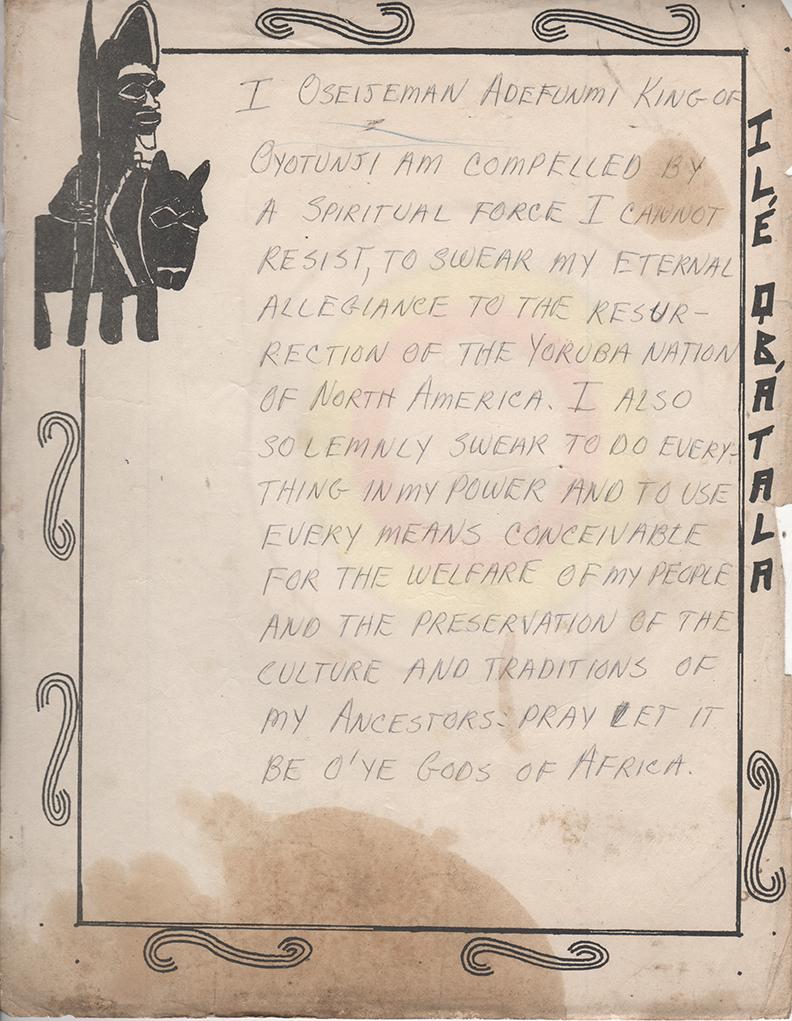 I OSEIJEMAN ADEFUNMI KING OF
OYOTUNJI AM COMPELLED BY
A SPIRITUAL FORCE I CANNOT
RESIST, TO SWEAR MY ETERNAL
ALLEGIANCE TO THE RESUR-
RECTION OF THE YORUBA NATION
OF NORTH AMERICA. I ALSO
SOLEMNLY SWEAR TO DO EVERY-
THING IN MY POWER AND TO USE
EVERY MEANS CONCEIVABLE
FOR THE WELFARE OF MY PEOPLE
AND THE PRESERVATION OF THE
CULTURE AND TRADITIONS OF
MY ANCESTORS: PRAY LET IT
BE O'YE GODS OF AFRICA.
ILÉ ỌBÁTALA